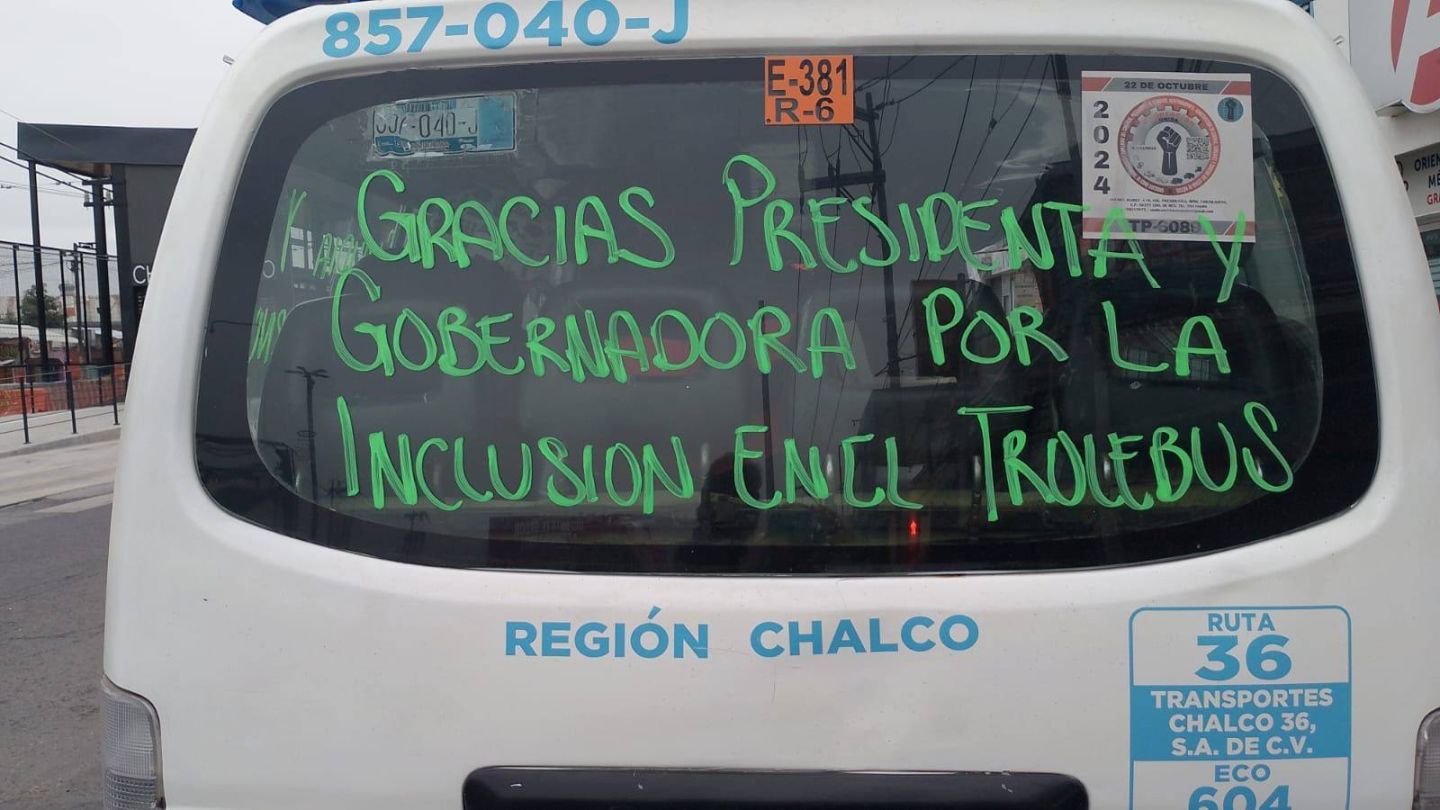 857-040-J
E-381
R-6
22 DE OCTUBRE
2024
TP-6089
GRACIAS PRESIDENTA Y
GOBERNADORA POR LA
INCLUSION EN EL TROLEBUS
REGIÓN CHALCO
RUTA
36
TRANSPORTES
CHALCO 36,
S.A. DE C.V.
ECO
604